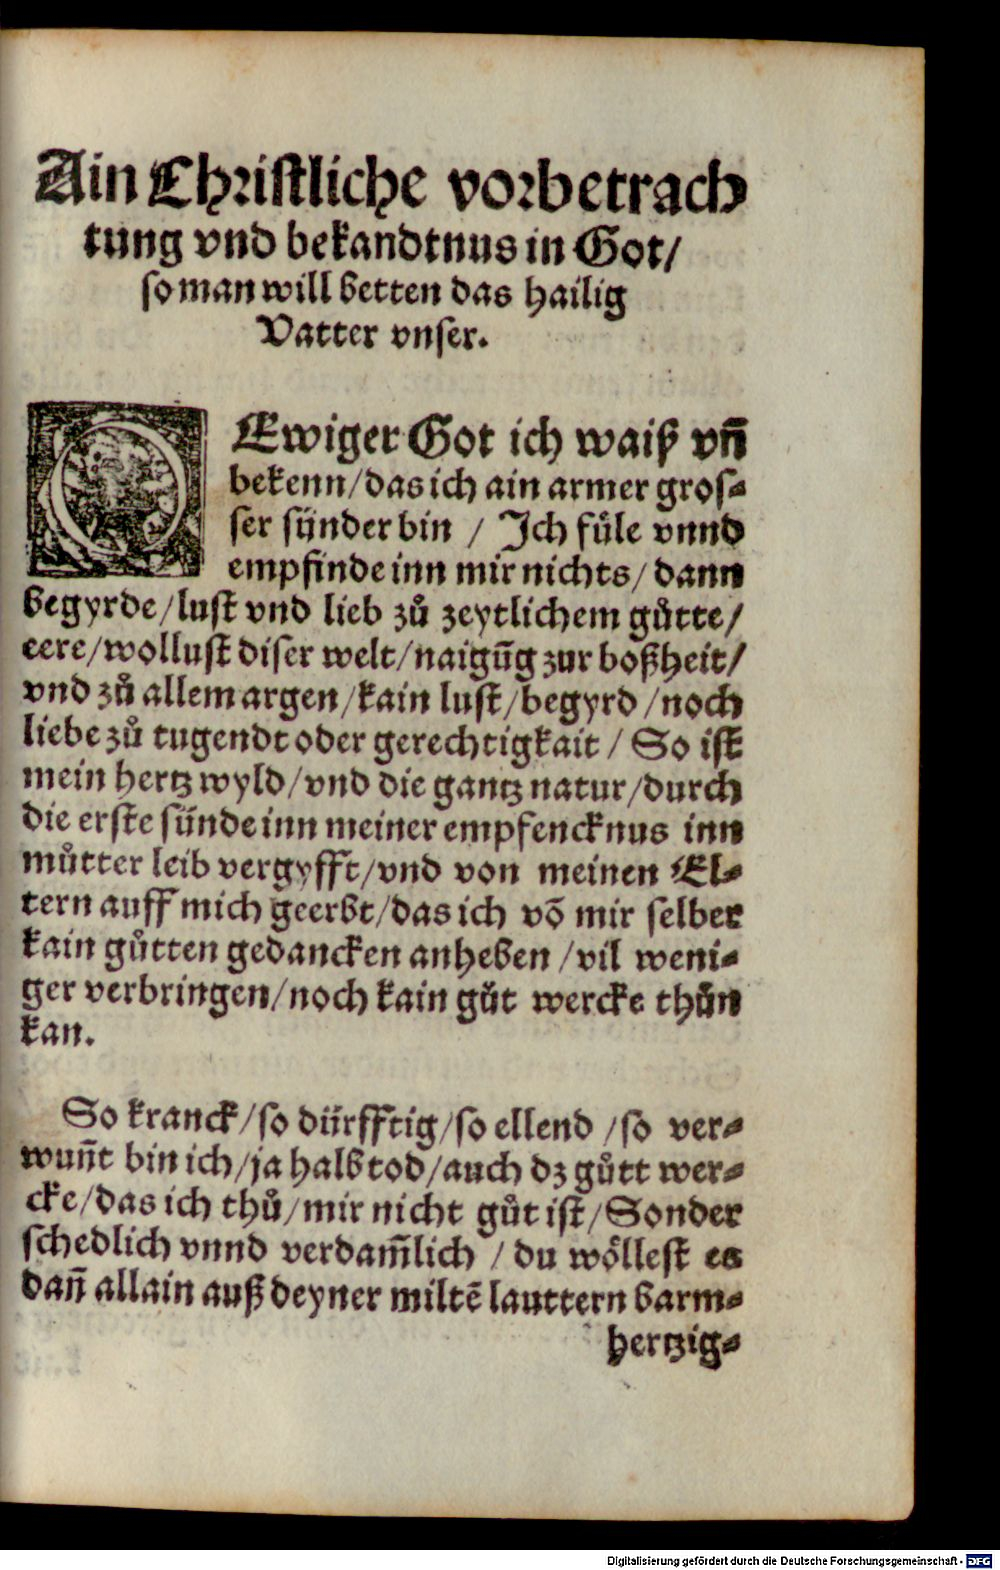 Ain Christliche vorbetrach
tung vnd bekandtnus in Got/
so man will betten das hailig
Vatter vnser.
O Ewiger Got ich waiß vñ
bekenn/das ich ain armer gros⸗
ser sünder bin / Ich füle vnnd
empfinde inn mir nichts/ dann
begyrde/lust vnd lieb zů zeytlichem gůtte/
eere/wollust diser welt/naigũg zur boßheit/
vnd zů allem argen/kain lust/begyrd /noch
liebe zů tugendt oder gerechtigkait / So ist
mein hertz wyld/vnd die gantz natur/durch
die erste sünde inn meiner empfencknus inn
můtter leib vergyfft/vnd von meinen El⸗
tern auff mich geerbt/das ich võ mir selber
kain gůtten gedancken anheben /vil weni⸗
ger verbringen/noch kain gůt wercke thůn
kan.
So kranck/so dürfftig/so ellend /so ver⸗
wuñt bin ich/ja halb tod/auch dz gůtt wer⸗
cke/das ich thů/mir nicht gůt ist/Sonder
schedlich vnnd verdam̃lich / du wöllest es
dañ allain auß deyner miltẽ lauttern barm⸗
hertzig⸗
Digitalisierung gefördert durch die Deutsche Forschungsgemeinschaft - DFG